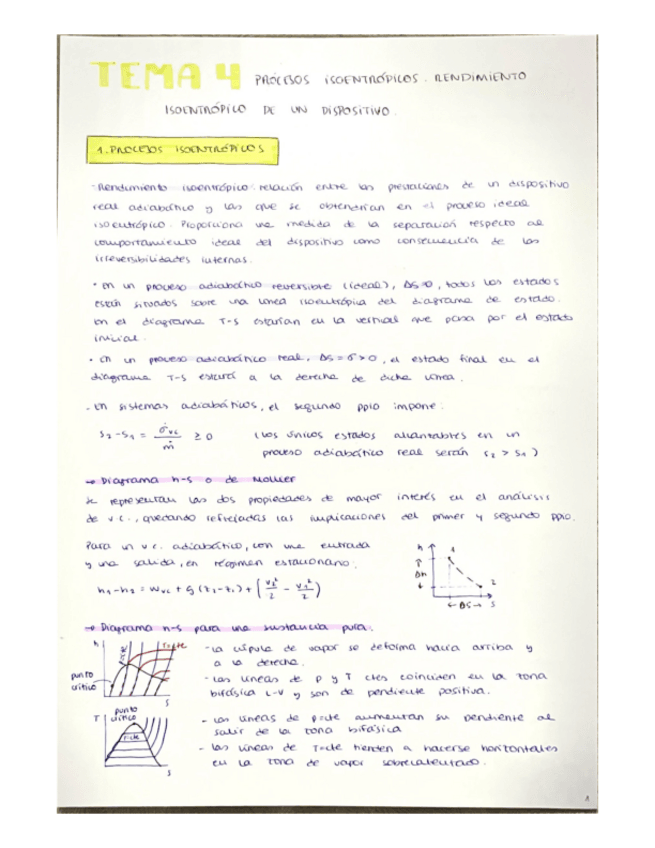 TEMA 4 PROCESOS ISOENTRÓPICOS. RENDIMIENTO
ISOENTRÓPICO DE UN DISPOSITIVO.
1. PROCESOS ISOENTRÓPICOS
· Rendimiento isoentrópico: relación entre las prestaciones de un dispositivo
real adiabático y las que se obtendrían en el proceso ideal
isoentrópico. Proporciona una medida de la separación respecto al
comportamiento ideal del dispositivo como consecuencia de las
irreversibilidades internas.
· En un proceso adiabático reversible (ideal), ΔS=0, todos los estados
están situados sobre una línea isoentrópica del diagrama de estado.
En el diagrama T-S estarían en la vertical que pasa por el estado
inicial.
· En un proceso adiabático real, ΔS = σ > 0, el estado final en el
diagrama T-S estará a la derecha de dicha línea.
- En sistemas adiabáticos, el segundo ppio impone:
s₂-s₁ = σ̇vc / ṁ ≥ 0 (los únicos estados alcanzables en un
proceso adiabático real serán s₂ > s₁)
→ Diagrama h-s o de Mollier
Se representan las dos propiedades de mayor interés en el análisis
de v.c., quedando reflejadas las implicaciones del primer y segundo ppio.
Para un v.c. adiabático, con una entrada
y una salida, en régimen estacionario:
h₁-h₂ = Wvc + g (z₂-z₁) + (v₂²/2 - v₁²/2)
h 1 2 Δh ΔS s
→ Diagrama h-s para una sustancia pura:
h P=cte T=cte punto crítico s
- La cúpula de vapor se deforma hacia arriba y
a la derecha.
- Las líneas de P y T ctes coinciden en la zona
bifásica L-V y son de pendiente positiva.
T punto crítico P=cte s
- Las líneas de P=cte aumentan su pendiente al
salir de la zona bifásica
- Las líneas de T=cte tienden a hacerse horizontales
en la zona de vapor sobrecalentado.
1